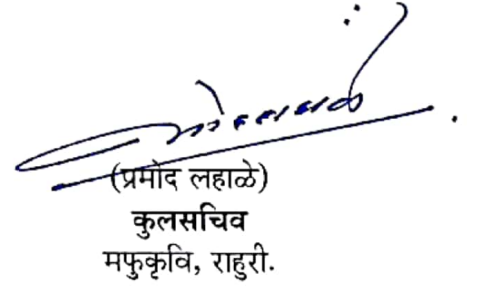 (प्रमोद लहाळे)
कुलसचिव
मफुकृवि, राहुरी.